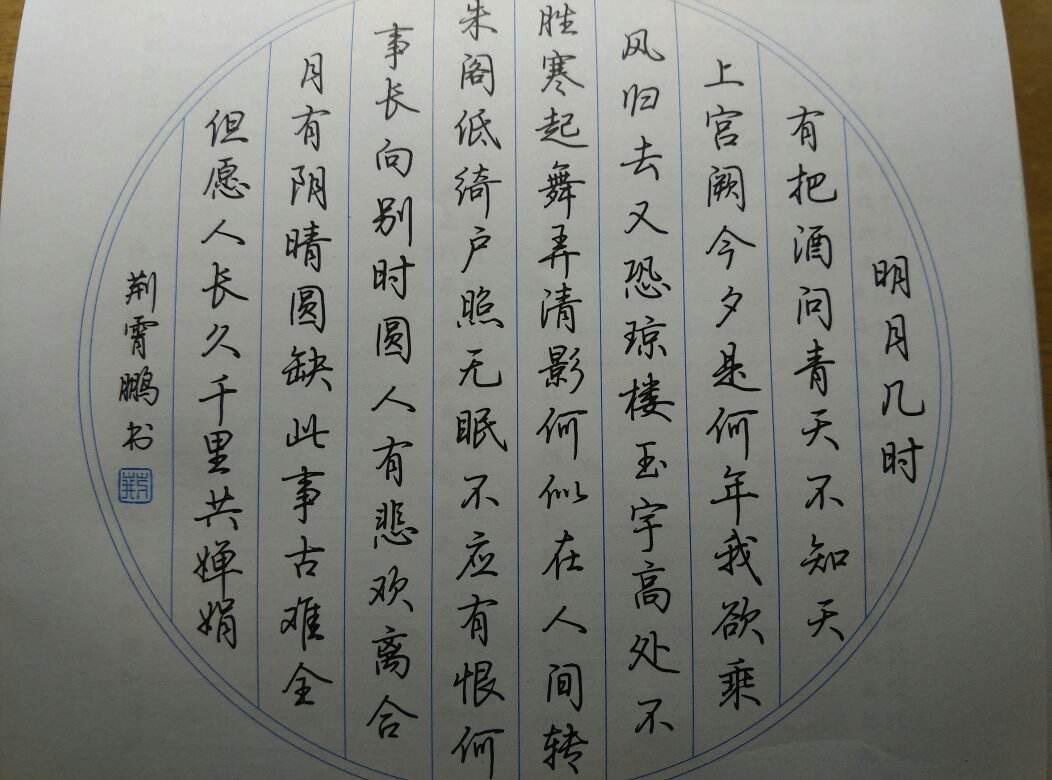 明月几时
有把酒问青天不知天
上宫阙今夕是何年我欲乘
风归去又恐琼楼玉宇高处不
胜寒起舞弄清影何似在人间转
朱阁低绮户照无眠不应有恨何
事长向别时圆人有悲欢离合
月有阴晴圆缺此事古难全
但愿人长久千里共婵娟
荆霄鹏书
荆